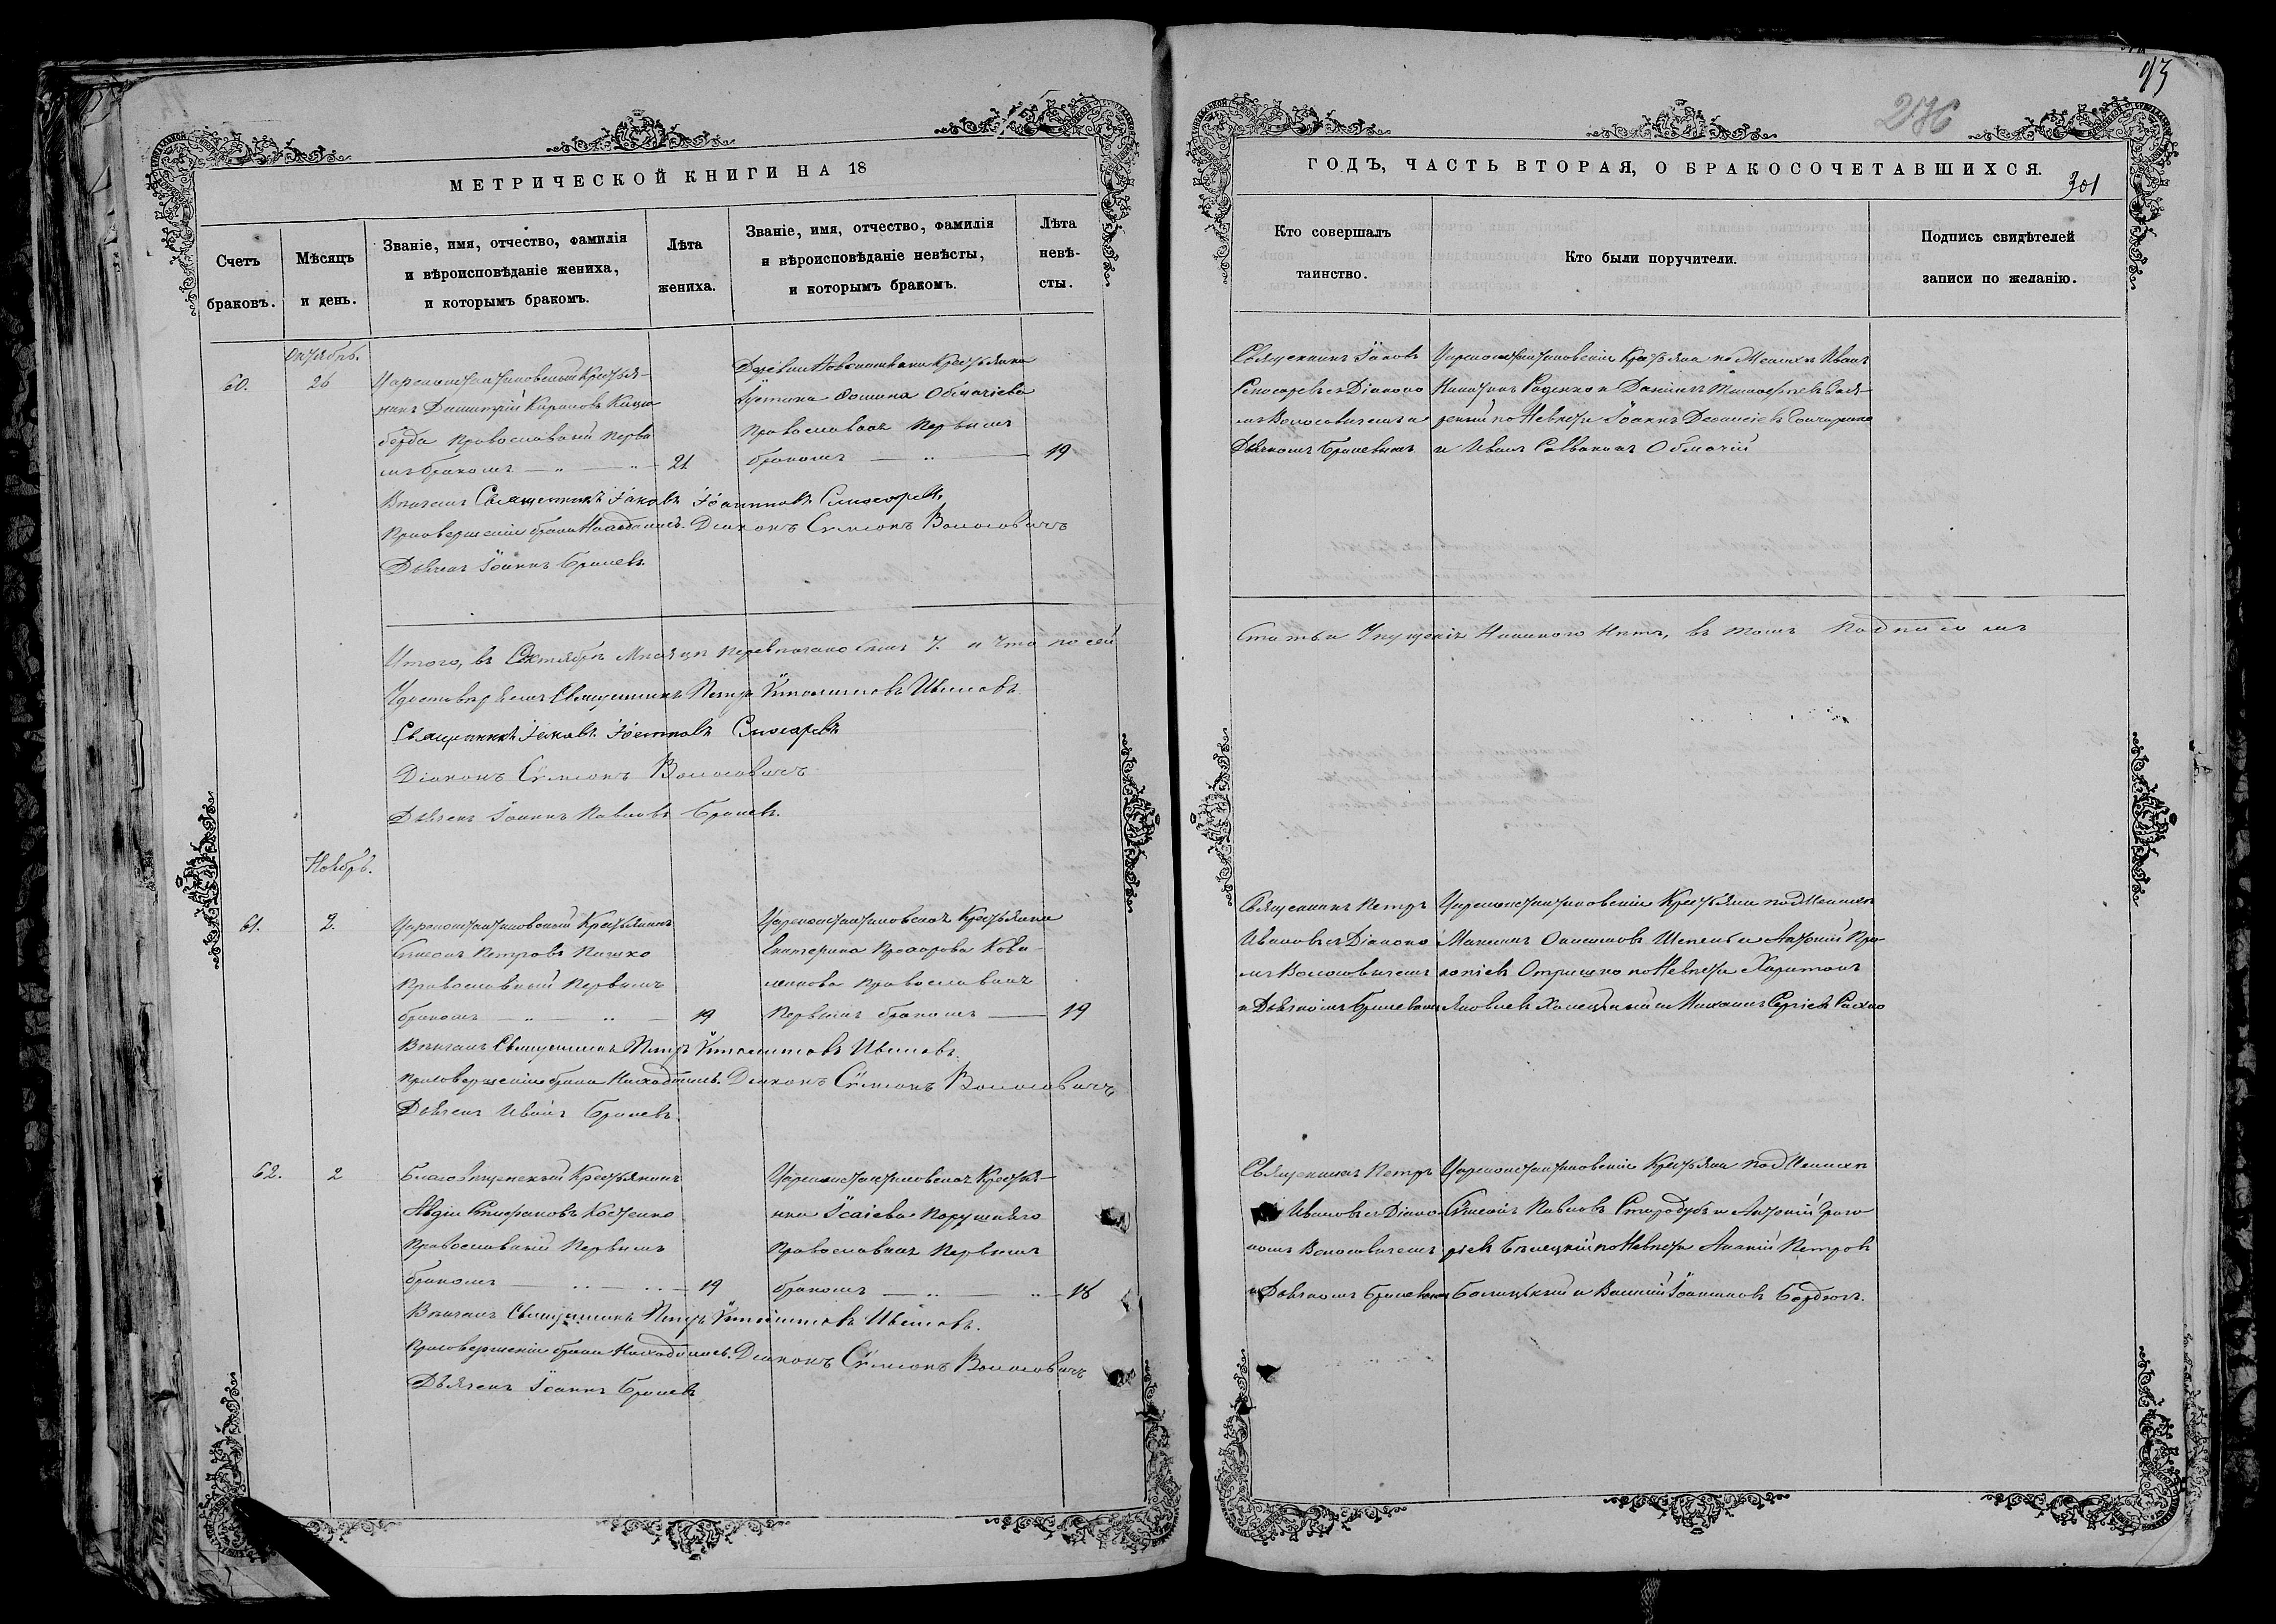 93
276
МЕТРИЧЕСКОЙ КНИГИ НА 18
Счетъ браковъ.
Мѣсяцъ и день.
Званіе, имя, отчество, фамилія
и вѣроисповѣданіе жениха,
и которымъ бракомъ.
Лѣта
жениха.
Званіе, имя, отчество, фамилія
и вѣроисповѣданіе невѣсты,
и которымъ бракомъ.
Лѣта
невѣ-
сты.
Октябрь.
60.
26
Цареконстантиновский Крестья-
нинъ Димитрій Кириловъ
Православный Первы
мъ бракомъ
21
Деревни Крестьянка
Іустина Фомина Обмачіева
Православная Первымъ
бракомъ
19
Вѣнчалъ Священникъ Іаковъ Іоанновъ Слюсаревъ
При совершеніи брака Находились. Діаконъ Сѵмеонъ Волосовичъ
Дьячекъ Іоаннъ Грачевъ
Итого, въ Октябрѣ Мѣсяцѣ Перевѣнчано 7. и что по сей
Удостовѣряемъ Священникъ Петръ Ивановъ
Священникъ Іаковъ Іоанновъ Слюсаревъ
Діаконъ Сѵмеонъ Волосовичъ
Дьячекъ Іоаннъ Павловъ Грачевъ.
Ноябрь.
61.
2.
Цареконстантиновский Крестьянинъ
Петровъ Пашко
Православный Первымъ
бракомъ
19
Цареконстантиновская Крестьянка
Екатерина Прохорова Кова-
ленкова Православная
Первымъ бракомъ
19
Вѣнчалъ Священникъ Петръ Ивановъ.
При совершеніи брака Находились. Діаконъ Сѵмеонъ Волосовичъ
Дьячекъ Иванъ Грачевъ
62.
2
Благовѣщенский Крестьянинъ
Авдій Костенко
Православный Первымъ
бракомъ
19
Цареконстантиновская Крестья-
нка Ісаіева
Православная Первымъ
бракомъ
18
Вѣнчалъ Священникъ Петръ Ивановъ.
При совершеніи брака Находились. Діаконъ Сѵмеонъ Волосовичъ
Дьячекъ Іоаннъ Грачевъ
ГОДЪ, ЧАСТЬ ВТОРАЯ, О БРАКОСОЧЕТАВШИХСЯ.
301
Кто совершалъ
таинство.
Кто были поручители.
Подпись свидѣтелей
записи по желанію.
Священникъ Іаковъ
Слюсаревъ съ Діаконо
мъ Волосовичемъ и
Дьячкомъ Грачевымъ
Цареконстантиновскіе Крестьяне по Женихѣ Иванъ
Никитинъ Руденко и Даніилъ Тимофеевъ
по Невѣстѣ Іоаннъ
и Иванъ Обмачій
Статьи Упущенія Никакого Нѣтъ, въ томъ Подписомъ
Священникъ Петръ
Ивановъ съ Діаконо
мъ Волосовичемъ
и Дьячкомъ Грачевымъ
Цареконстантиновскіе Крестьяне по Женихѣ
Максимъ Шепель и Антоній Про-
копіевъ Отришко по Невѣстѣ Харитонъ
Яковлевъ и Михаилъ Сергіевъ
Священникъ Петръ
Ивановъ съ Діако-
номъ Волосовичемъ
и Дьячкомъ Грачевымъ
Цареконстантиновскіе Крестьяне по Женихѣ
Сѵмеонъ Павловъ Стародубъ и Антоній Григо
ріевъ по Невѣстѣ Ананій Петровъ
и Василій Іоанновъ